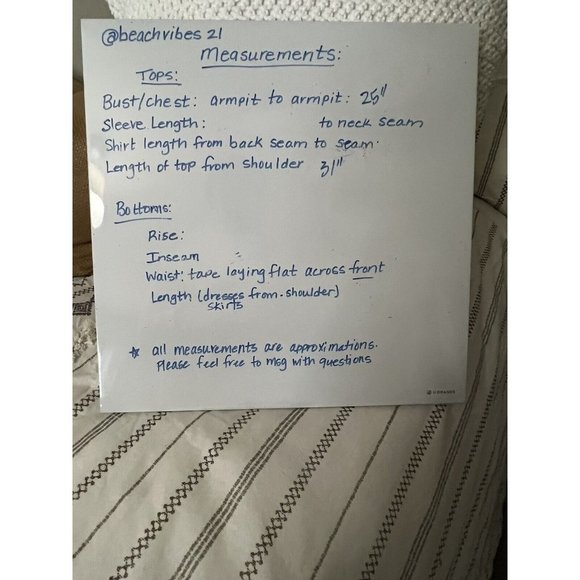 @beachvibes 21
Measurements:
Tops:
Bust/chest: armpit to armpit: 25"
Sleeve Length: to neck seam
Shirt length from back seam to seam.
Length of top from shoulder 31"
Bottoms:
Rise:
Inseam
Waist: tape laying flat across front
Length (dresses from shoulder)
skirts
☆ all measurements are approximations.
Please feel free to msg with questions